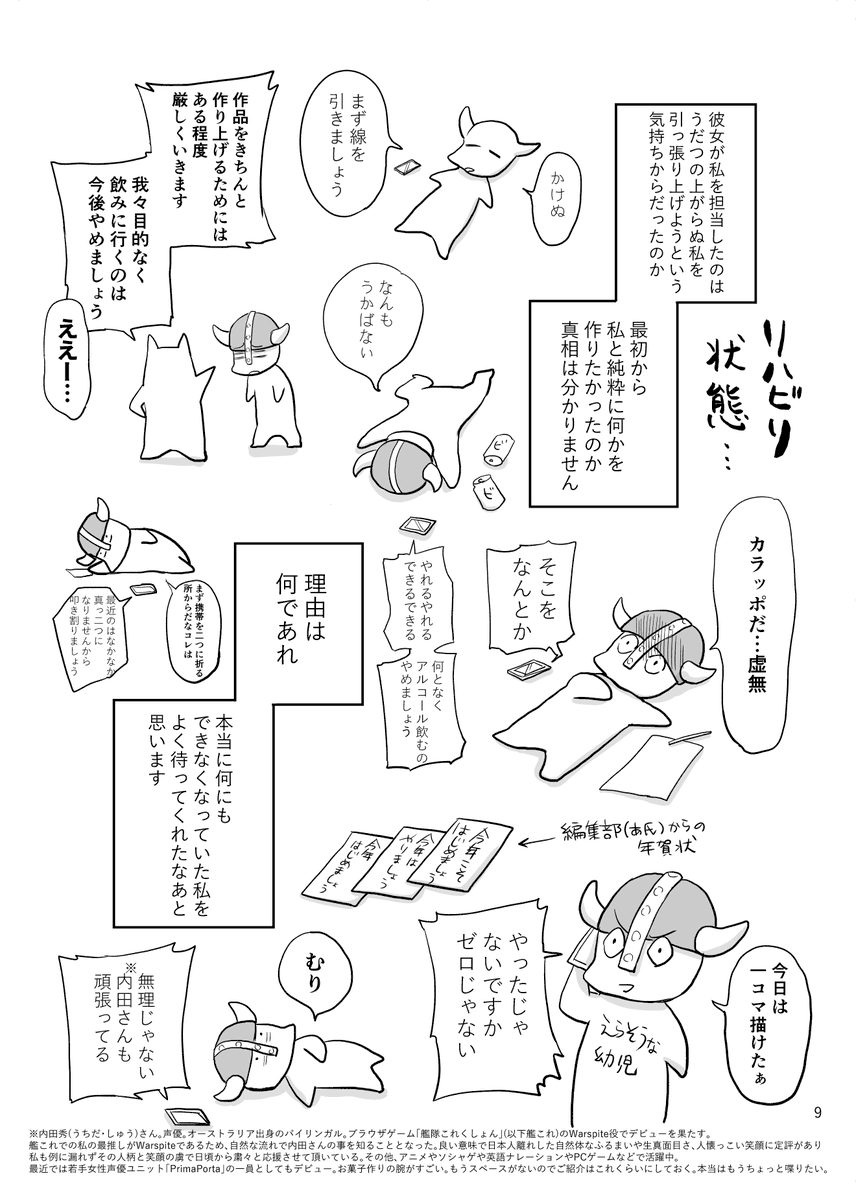 彼女が私を担当したのは
うだつの上がらぬ私を
引っ張り上げようという
気持ちからだったのか
かけぬ
まず線を
引きましょう
作品をきちんと
作り上げるためには
ある程度
厳しくいきます
我々目的なく
飲みに行くのは
今後やめましょう
ええー…
リハビリ
状態…
最初から
私と純粋に何かを
作りたかったのか
真相は分かりません
なんも
うかばない
ビ
ビ
カラッポだ…虚無
そこを
なんとか
やれるやれる
できるできる
何となく
アルコール飲むの
やめましょう
理由は
何であれ
まず携帯を二つに折る
所からだなコレは
最近のはなかなか
真っ二つに
なりませんから
叩き割りましょう
本当に何にも
できなくなっていた私を
よく待ってくれたなあと
思います
編集部(あん)からの
年賀状
今年こそ
はじめましょう
今年は
やりましょう
今年
はじめましょう
今日は
一コマ描けたぁ
えらそうな
幼児
やったじゃ
ないですか
ゼロじゃない
むり
無理じゃない
※内田さんも
頑張ってる
9
※内田秀(うちだ・しゅう)さん。声優。オーストラリア出身のバイリンガル。ブラウザゲーム「艦隊これくしょん」(以下艦これ)のWarspite役でデビューを果たす。
艦これでの私の最推しがWarspiteであるため、自然な流れで内田さんの事を知ることとなった。良い意味で日本人離れした自然体なふるまいや生真面目さ、人懐っこい笑顔に定評があり
私も例に漏れずその人柄と笑顔の虜で日頃から粛々と応援させて頂いている。その他、アニメやソシャゲや英語ナレーションやPCゲームなどで活躍中。
最近では若手女性声優ユニット「PrimaPorta」の一員としてもデビュー。お菓子作りの腕がすごい。もうスペースがないのでご紹介はこれくらいにしておく。本当はもうちょっと喋りたい。